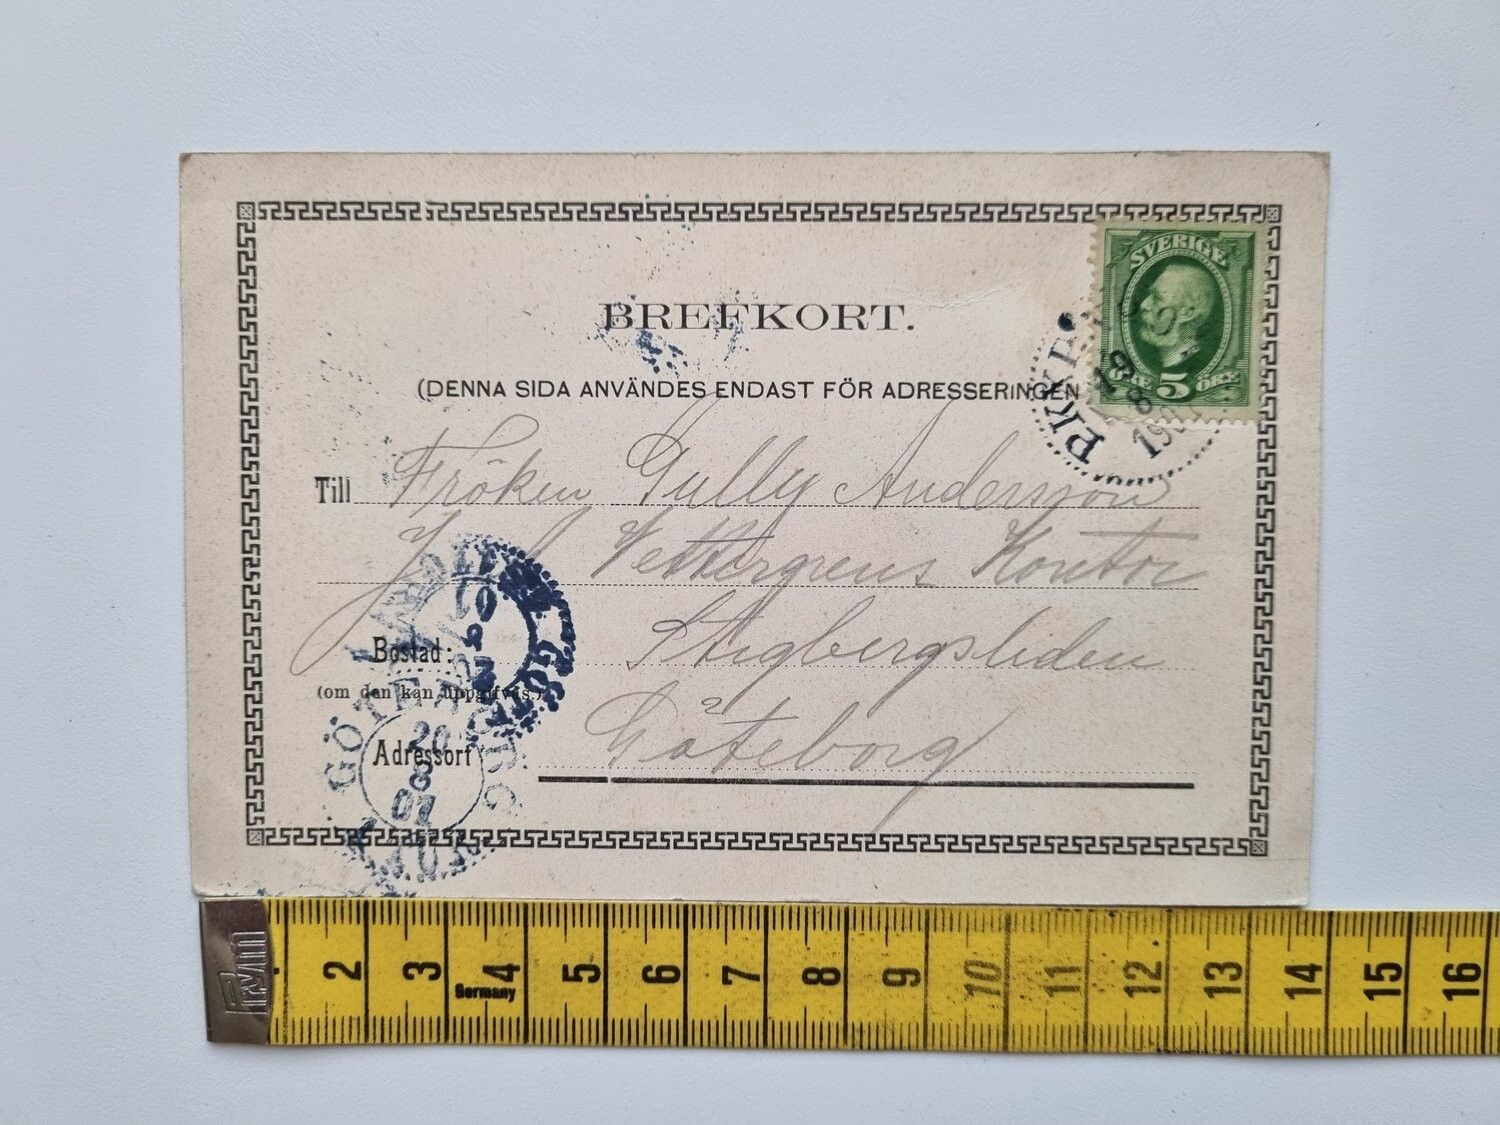 BREFKORT.
(DENNA SIDA ANVÄNDES ENDAST FÖR ADRESSERINGEN
SVERIGE
5
ÖRE
ÖRE
19
8
Till Fröken Gully Anderson
Vettergrens Kontor
Bostad: Stigbergsliden
(om den kan uppgifvas.)
Adressort: Göteborg
GÖTEBORG
20
8
01
Prym
2 3 4 5 6 7 8 9 10 11 12 13 14 15 16
Germany